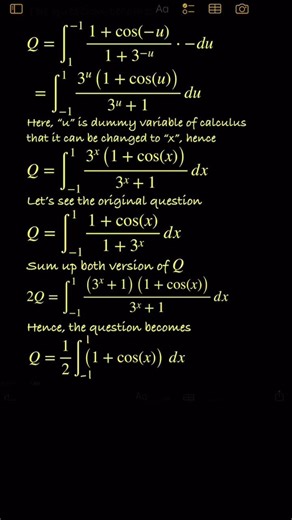 Aa
Q = \int_{1}^{-1} \frac{1 + cos(-u)}{1 + 3^{-u}} · -du
= \int_{-1}^{1} \frac{3^u (1 + cos(u))}{3^u + 1} du
Here, “u” is dummy variable of calculus
that it can be changed to “x”, hence
Q = \int_{-1}^{1} \frac{3^x (1 + cos(x))}{3^x + 1} dx
Let’s see the original question
Q = \int_{-1}^{1} \frac{1 + cos(x)}{1 + 3^x} dx
Sum up both version of Q
2Q = \int_{-1}^{1} \frac{(3^x + 1) (1 + cos(x))}{3^x + 1} dx
Hence, the question becomes
Q = \frac{1}{2} \int_{-1}^{1} (1 + cos(x)) dx
Aa